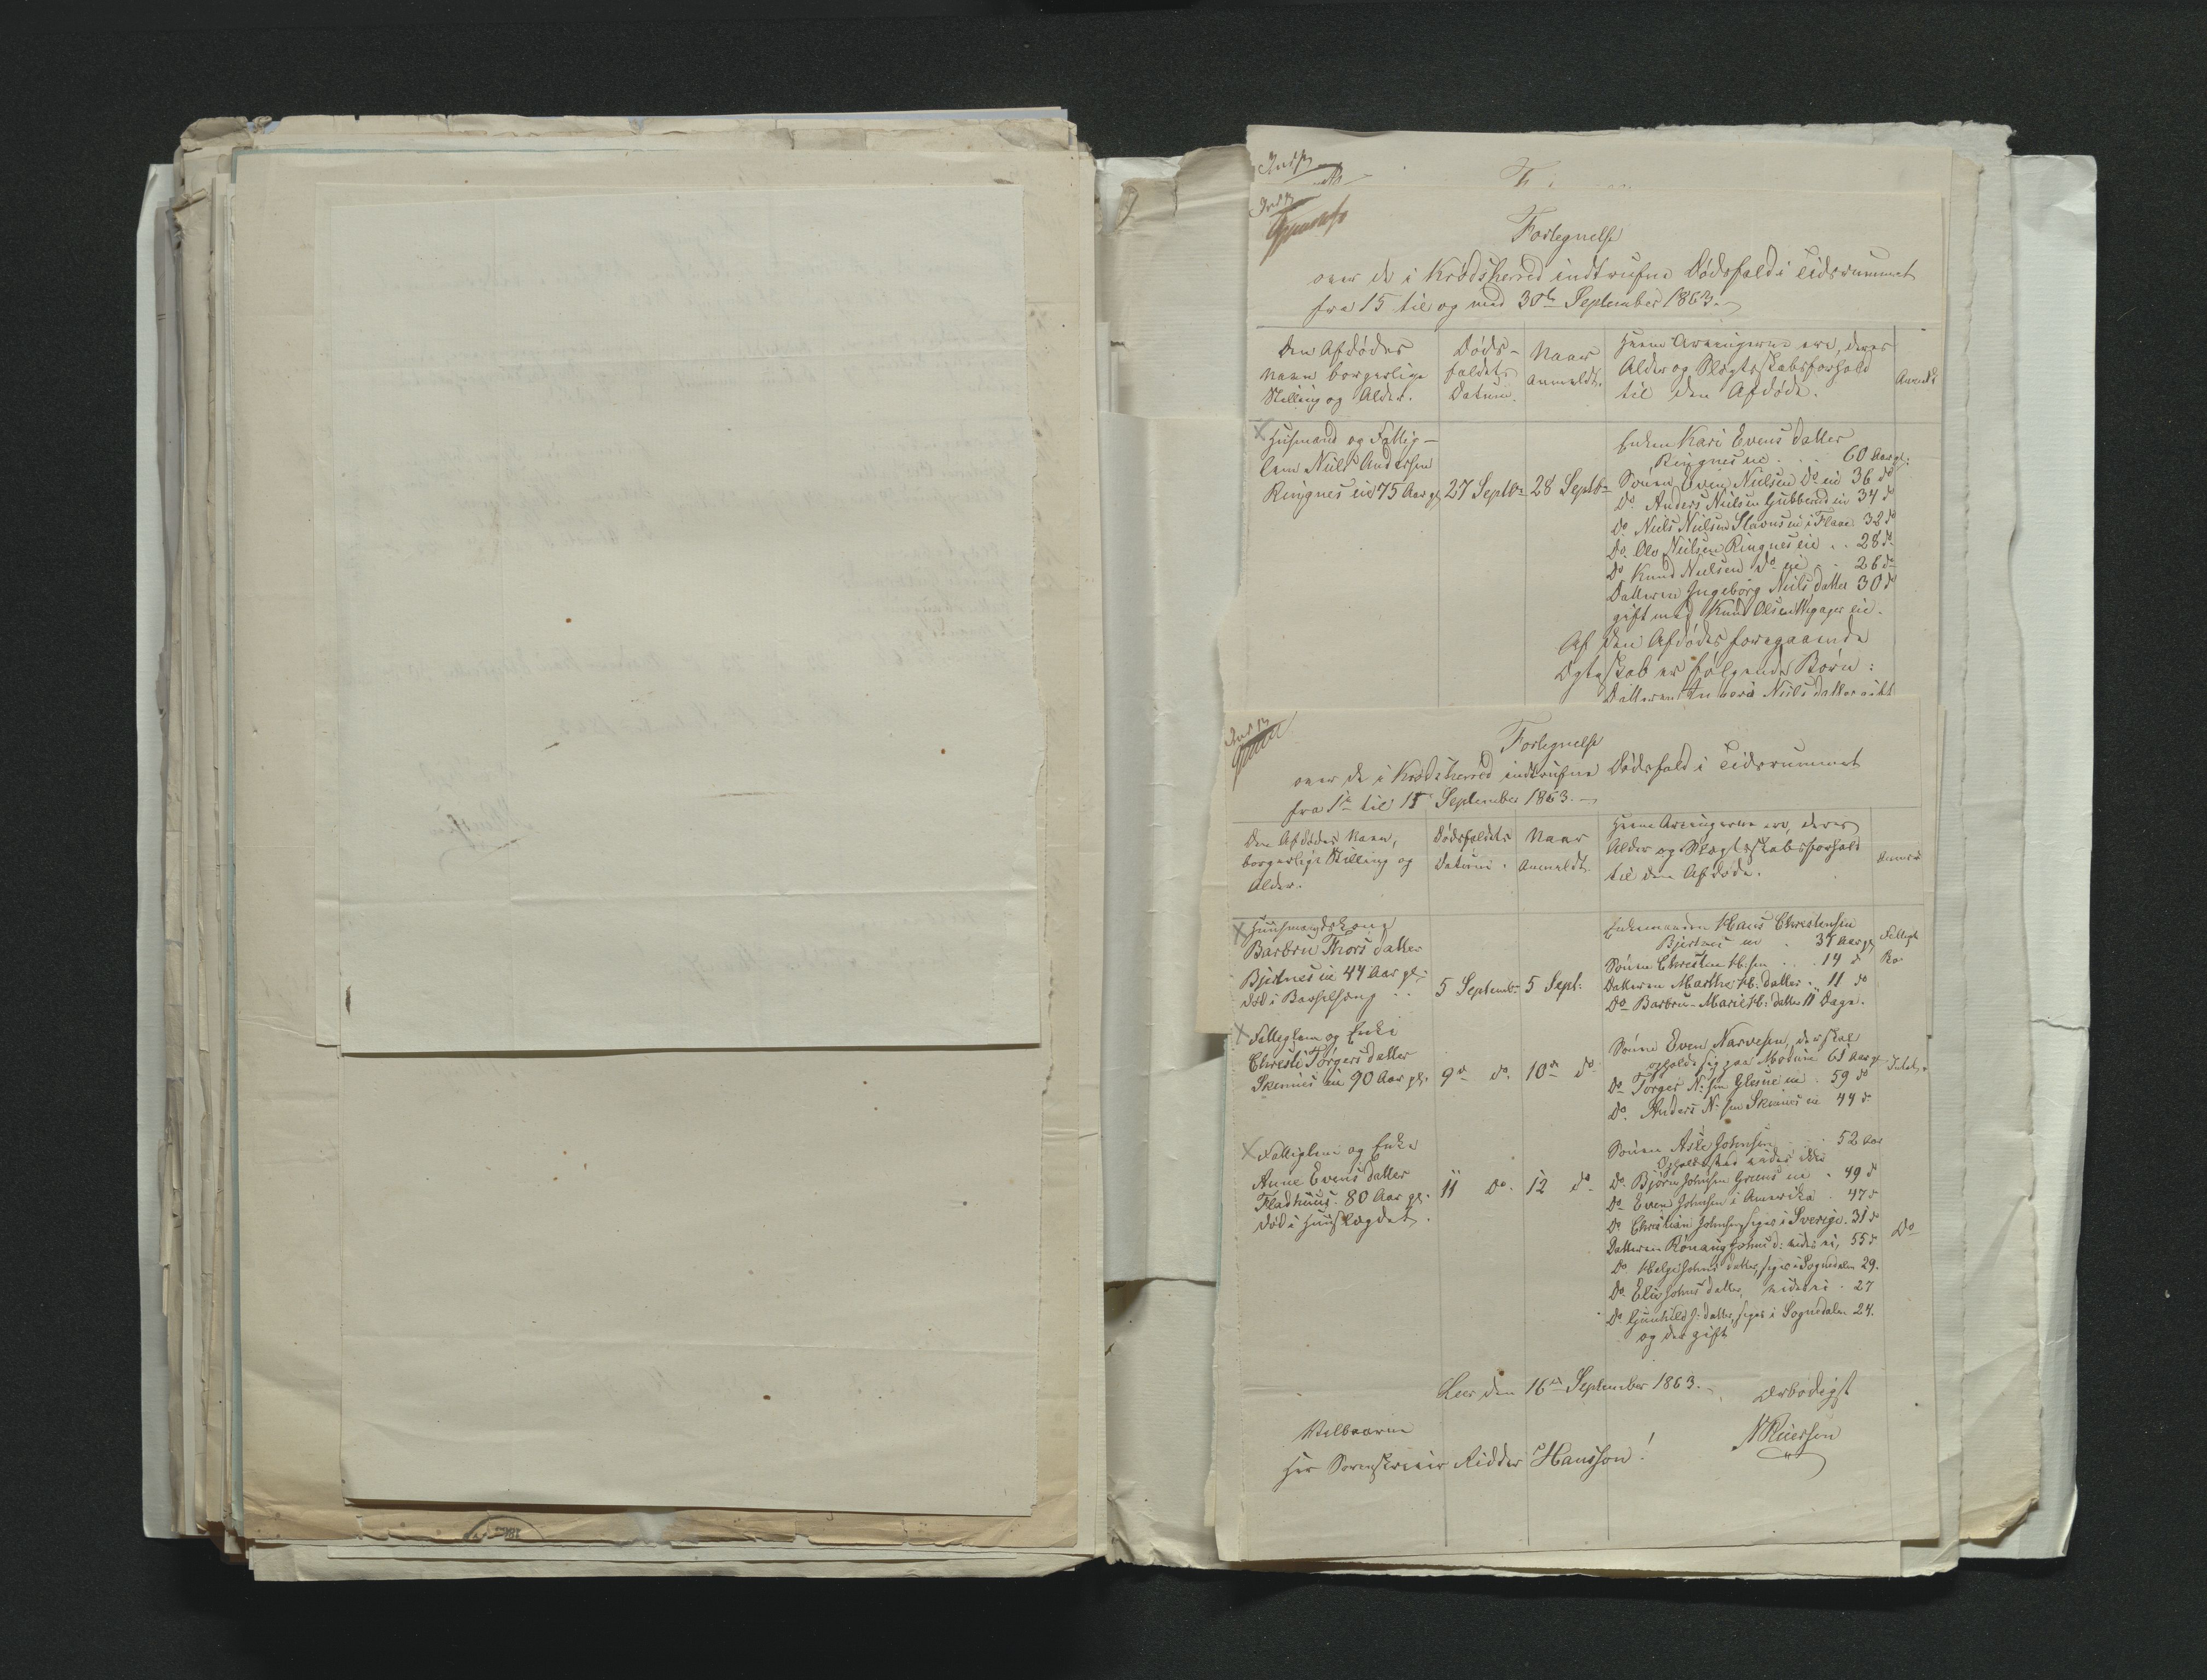 Indf
Indf
Fortegnelse
over de i Krødsherred indtrufne Dødsfald i Tidsrummet
fra 15 til og med 30te September 1863.
Den Afdødes
Navn borgerlige
Stilling og Alder.
Døds-
faldets
Datum.
Naar
anmeldt.
Hvem Arvingerne ere, deres
Alder og Slægtskabsforhold
til den Afdøde.
Anmk
Husmand og Fattig-
lem Niels Anderssen
Ringnes eie 75 Aar gl.
27 Septbr
28 Septbr
Enken Kari Evens datter
Ringnes eie . . . 60 Aar gl:
Sønnen Even Nielsen Do eie 36 do
Do Anders Nielsen Gubberud eie 34 do
Do Niels Nielsen Slavns eie i Flaae 32 do
Do Ole Nielsen Ringnes eie . . 28 do
Do Knud Nielsen do eie . . 26 do
Datteren Ingeborg Niels datter 30 do
gift med Knud Olsen eie.
Af den Afdødes foregaaende
Ægteskab er følgende Børn:
Datteren Niels datter gift
Indf
Fortegnelse
over de i Krødsherred indtrufne Dødsfald i Tidsrummet
fra 1te til 15 September 1863.
Den Afdødes Navn,
borgerlige Stilling og
Alder.
Dødsfaldets
Datum.
Naar
Anmeldt.
Hvem Arvingerne ere, deres
Alder og Slægtskabsforhold
til den Afdøde.
Huusmandskone
Barbru Thors datter
Bjertnes eie 44 Aar gl.
død i Barselseng . .
5 Septembr
5 Sept:
Enkemanden Hans Christensen
Bjertnes eie . 35 Aar gl.
Sønnen Christen H:sen . . 14 do
Datteren Marthe H: datter . 11 do
Do Barbru-Marie H: datter 11 Dage.
Fattigl
Ko.
Fattiglem og Enke
Christi Torgers datter
Skrenes eie 90 Aar gl.
9de do.
10de do
Sønnen Even Narvesen, der skal
opholde sig paa Modum 61 Aar gl
Do Torger N:sen Glesne eie . 59 do
Do Anders N:sen Skrenes eie 44 do
Intet.
Fattiglem og Enke
Anne Evens datter
Fladhuus 80 Aar gl.
død i Huuslægdet.
11 do.
12 do
Sønnen Asle Johnsen . . 52 Aar
Opholdssted vides ikke
Do Bjørn Johnsen Greens eie . 49 do
Do Even Johnsen i Amerika . 47 do
Do Christian Johnsen, siges i Sverige. 31 do
Datteren Rønaug Johns d: vides ei, 55 do
Do Helge Johns datter, siges i Sognedalen 29.
Do Elie Johns datter, vides ei . 27
Do Gunhild J: datter, siges i Sognedalen 24.
og der gift
Do
Leer den 16de September 1863.
Ærbødigst
Velbaarne
Hr Sorenskriver Ridder Hansson!